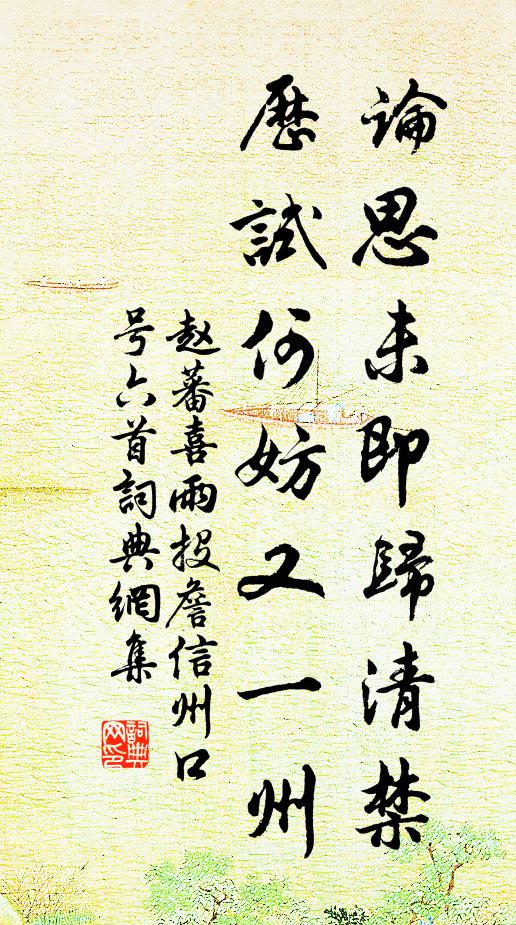 論思未即歸清禁
歷試何妨又一州
赵蕃喜雨投詹信州口
号六首詞典網集
詞典網印